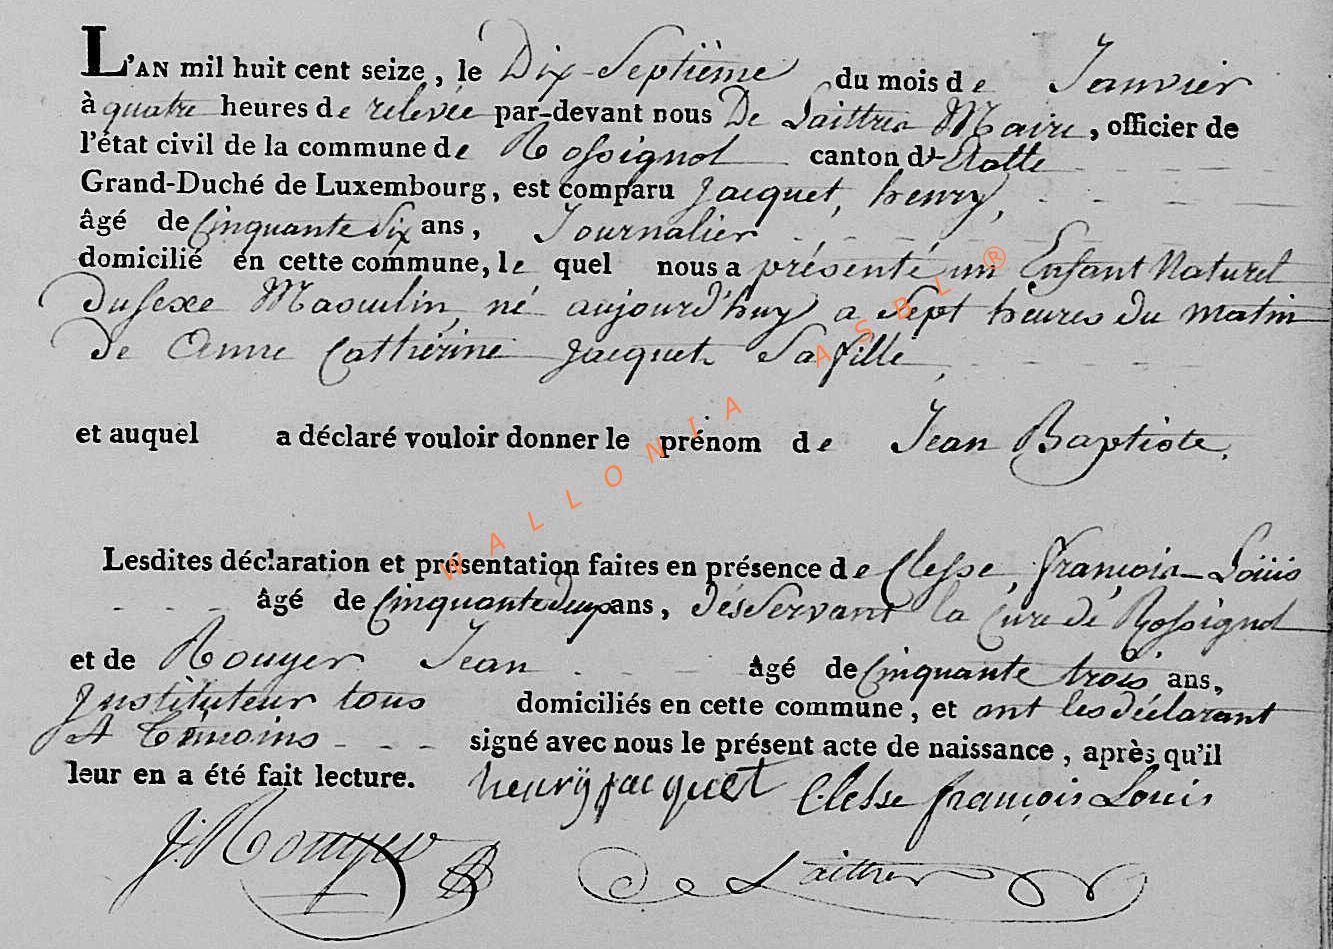 L'AN mil huit cent seize, le Dix-Septième du mois de Janvier
à quatre heures de relevée par-devant nous De Laittres Maire, officier de
l'état civil de la commune de Rossignol canton d'Etalle
Grand-Duché de Luxembourg, est comparu Jacquet, henry,
âgé de Cinquante Six ans, Journalier
domicilié en cette commune, le quel nous a présenté un Enfant Naturel
du sexe Masculin, né aujourd'huy a Sept heures du matin
De Anne Catherine Jacquet Sa fille,
et auquel a déclaré vouloir donner le prénom de Jean Baptiste.
Lesdites déclaration et présentation faites en présence de Clesse, françois-Loüis
âgé de Cinquante deux ans, désservant la Cure de Rossignol
et de Rouyer Jean âgé de Cinquante trois ans,
Instituteur tous domiciliés en cette commune, et ont les déclarant
et Témoins signé avec nous le présent acte de naissance, après qu'il
leur en a été fait lecture. henrÿ jacquet Clesse françois Louis
J. Rouyer De Laittres
WALLONIA ASBL ®